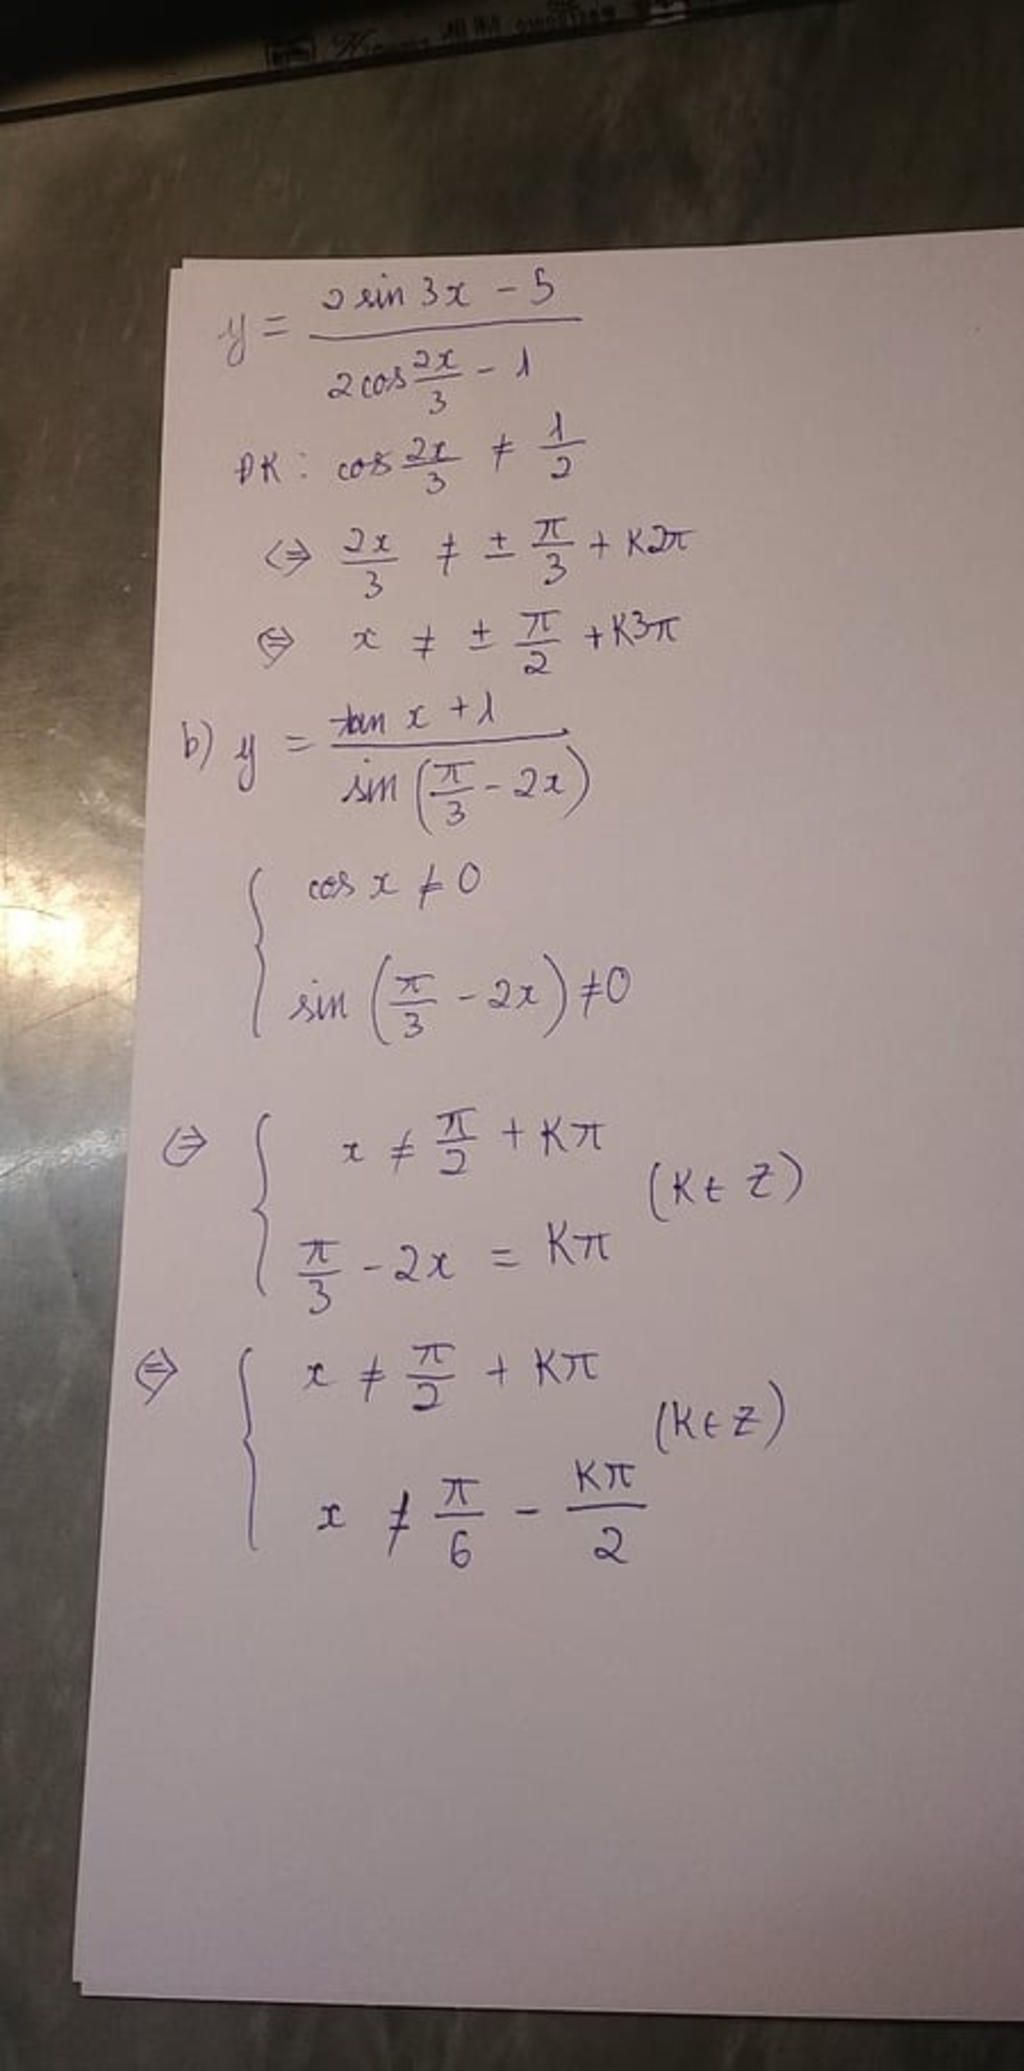 y = (2 sin 3x - 5) / (2 cos 2x/3 - 1)
ĐK: cos 2x/3 ≠ 1/2
⇔ 2x/3 ≠ ± π/3 + K2π
⇔ x ≠ ± π/2 + K3π
b) y = (tan x + 1) / (sin (π/3 - 2x))
{ cos x ≠ 0
sin (π/3 - 2x) ≠ 0
⇔ { x ≠ π/2 + Kπ
(K ∈ Z)
π/3 - 2x = Kπ
⇔ { x ≠ π/2 + Kπ
(K ∈ Z)
x ≠ π/6 - Kπ/2